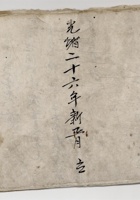 光緒二十六年新正月 立